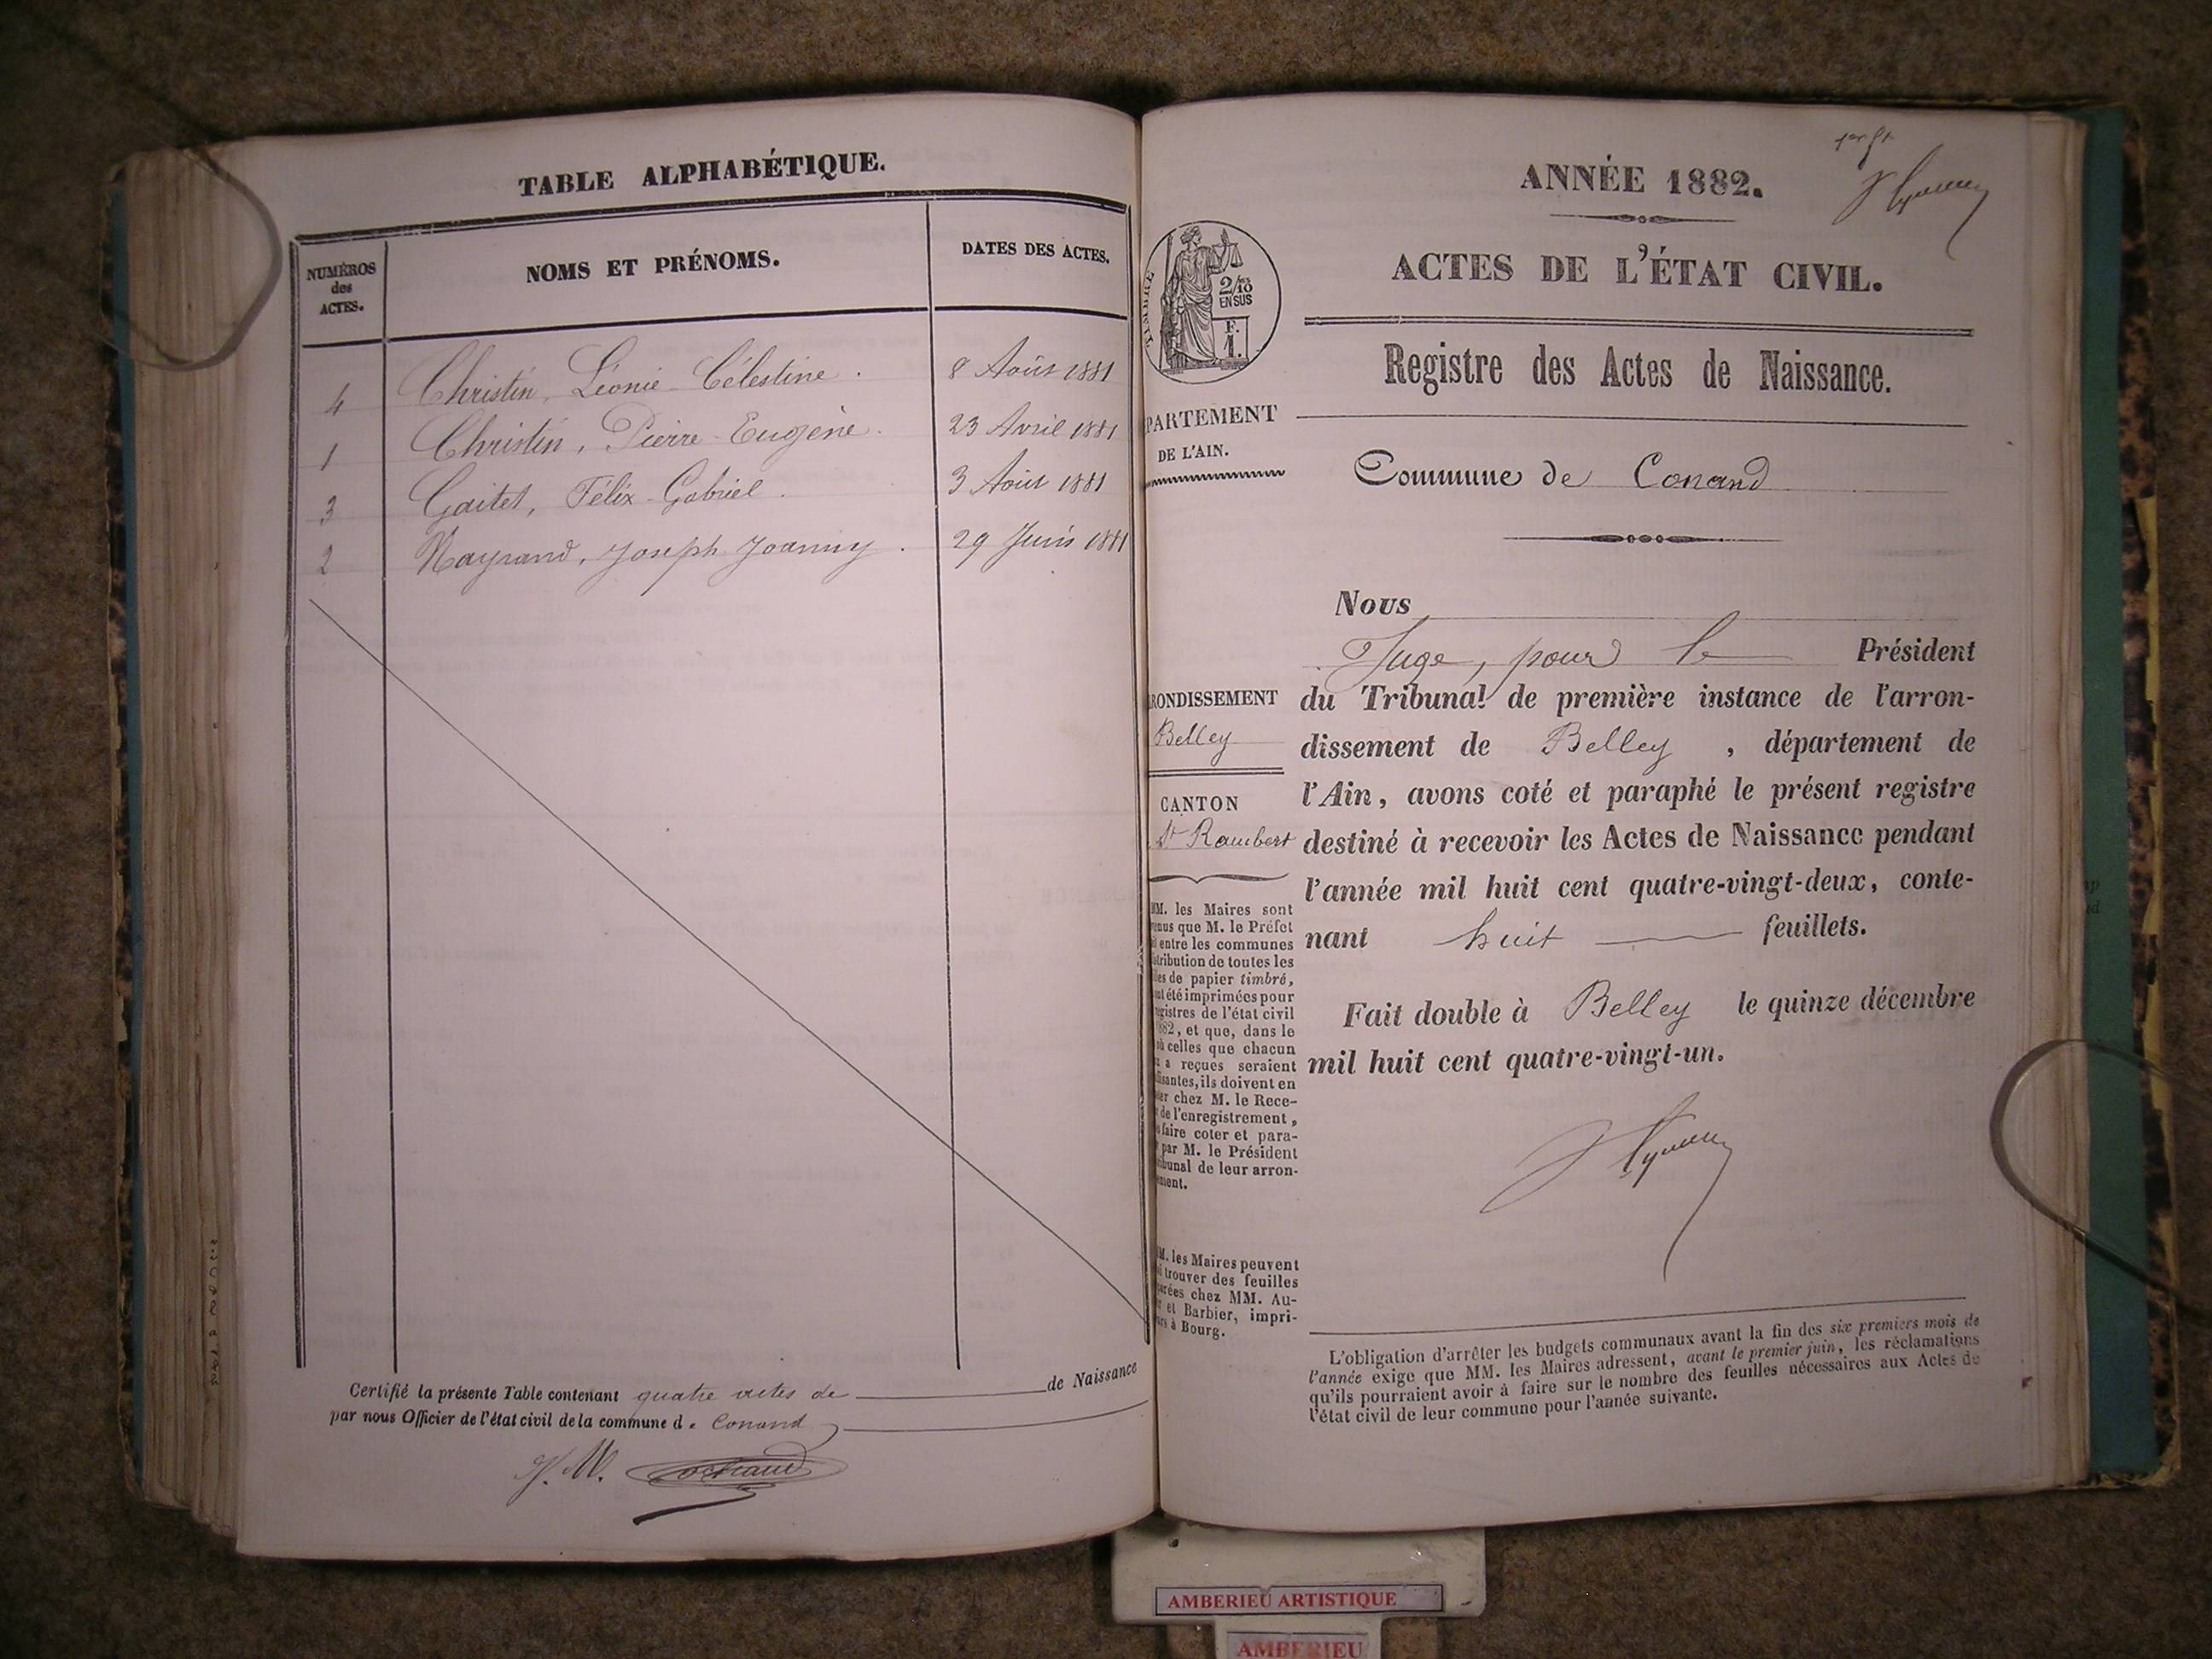 TABLE ALPHABÉTIQUE.
NUMÉROS
des
ACTES.
NOMS ET PRÉNOMS.
DATES DES ACTES.
4 Christin, Léonie-Célestine. 8 Août 1881
1 Christin, Pierre-Eugène. 23 Avril 1881
3 Gaitet, Félix-Gabriel. 3 Août 1881
2 Nayrand, Joseph Joanny. 29 Juin 1881
Certifié la présente Table contenant quatre actes de de Naissance
par nous Officier de l'état civil de la commune de Conand
ANNÉE 1882.
ACTES DE L'ÉTAT CIVIL.
TIMBRE
2/10
EN SUS
F.
1.
Registre des Actes de Naissance.
PARTEMENT
DE L'AIN.
Commune de Conand
Nous
Juge, pour le Président
du Tribunal de première instance de l'arron-
dissement de Belley, département de
l'Ain, avons coté et paraphé le présent registre
destiné à recevoir les Actes de Naissance pendant
l'année mil huit cent quatre-vingt-deux, conte-
nant huit feuillets.
Fait double à Belley le quinze décembre
mil huit cent quatre-vingt-un.
RONDISSEMENT
Belley
CANTON
St Rambert
MM. les Maires sont
que M. le Préfet
entre les communes
tribution de toutes les
de papier timbré,
été imprimées pour
gistres de l'état civil
et que, dans le
celles que chacun
a reçues seraient
santes, ils doivent en
chez M. le Rece-
de l'enregistrement,
faire coter et para-
par M. le Président
bunal de leur arron-
ment.
M. les Maires peuvent
trouver des feuilles
chez MM. Au-
et Barbier, impri-
à Bourg.
L'obligation d'arrêter les budgets communaux avant la fin des six premiers mois de
l'année exige que MM. les Maires adressent, avant le premier juin, les réclamations
qu'ils pourraient avoir à faire sur le nombre des feuilles nécessaires aux Actes de
l'état civil de leur commune pour l'année suivante.
AMBERIEU ARTISTIQUE
AMBERIEU